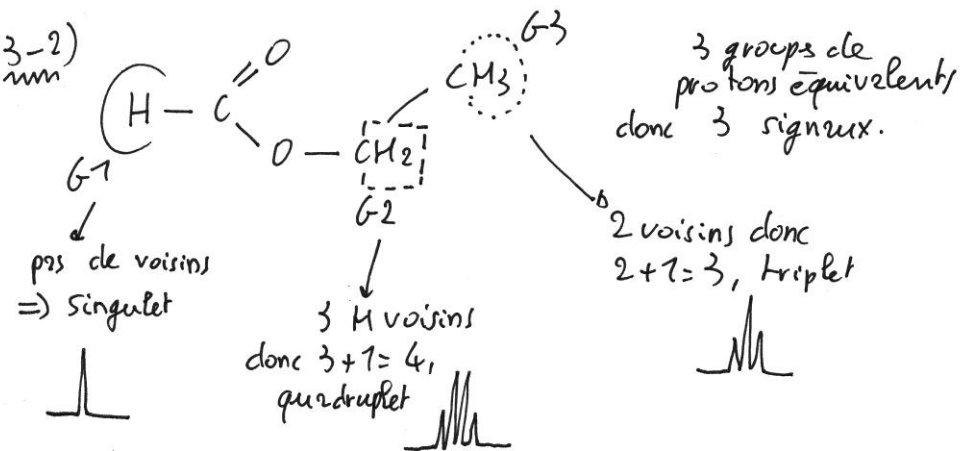 3-2)
H — C
O
O — CH2
CH3
G1
G2
G3
3 groups de
protons équivalents
donc 3 signaux.
pas de voisins
=> Singulet
3 H voisins
donc 3+1=4,
quadruplet
2 voisins donc
2+1=3, triplet